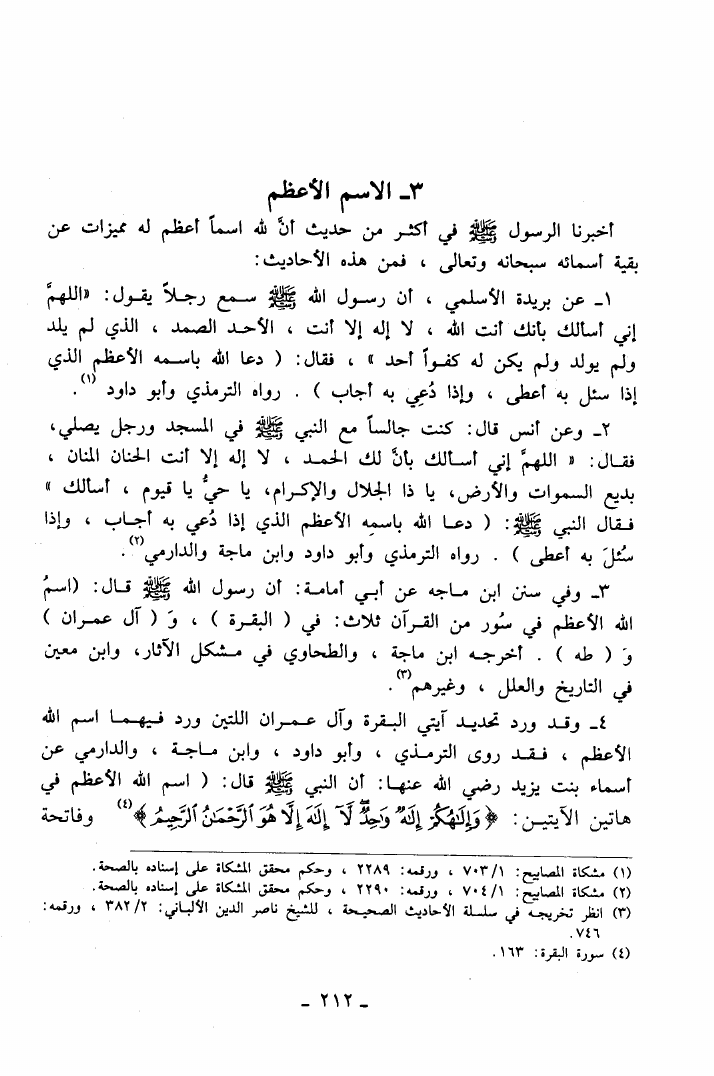 ٣ـ الاسم الأعظم
أخبرنا الرسول ﷺ في أكثر من حديث أنَّ لله اسماً أعظم له مميزات عن
بقية أسمائه سبحانه وتعالى ، فمن هذه الأحاديث:
١ـ عن بريدة الأسلمي ، أن رسول الله ﷺ سمع رجلاً يقول: «اللهمَّ
إني أسألك بأنك أنت الله ، لا إله إلا أنت ، الأحد الصمد ، الذي لم يلد
ولم يولد ولم يكن له كفواً أحد » ، فقال: ( دعا الله باسمه الأعظم الذي
إذا سئل به أعطى ، وإذا دُعِي به أجاب ) . رواه الترمذي وأبو داود (١).
٢ـ وعن أنس قال: كنت جالساً مع النبي ﷺ في المسجد ورجل يصلي،
فقال: « اللهمَّ إني أسألك بأنَّ لك الحمد ، لا إله إلا أنت الحنان المنان ،
بديع السموات والأرض، يا ذا الجلال والإكرام، يا حيُّ يا قيوم ، أسألك »
فقال النبي ﷺ: ( دعا الله باسمِه الأعظم الذي إذا دُعي به أجاب ، وإذا
سُئلَ به أعطى ) . رواه الترمذي وأبو داود وابن ماجة والدارمي(٢).
٣ـ وفي سنن ابن ماجه عن أبي أمامة: أن رسول الله ﷺ قال: (اسمُ
الله الأعظم في سُور من القرآن ثلاث: في ( البقرة ) ، وَ ( آل عمران )
وَ ( طه ) . أخرجه ابن ماجة ، والطحاوي في مشكل الآثار، وابن معين
في التاريخ والعلل ، وغيرهم(٣).
٤ـ وقد ورد تحديد آيتي البقرة وآل عمران اللتين ورد فيهما اسم الله
الأعظم ، فقد روى الترمذي ، وأبو داود ، وابن ماجة ، والدارمي عن
أسماء بنت يزيد رضي الله عنها: أن النبي ﷺ قال: ( اسم الله الأعظم في
هاتين الآيتين: ﴿وَإِلَٰهُكُمْ إِلَٰهٌ وَاحِدٌ لَّآ إِلَٰهَ إِلَّا هُوَ ٱلرَّحْمَٰنُ ٱلرَّحِيمُ﴾(٤) وفاتحة
(١) مشكاة المصابيح: ٧٠٣/١ ، ورقمه: ٢٢٨٩ ، وحكم محقق المشكاة على إسناده بالصحة.
(٢) مشكاة المصابيح: ٧٠٤/١ ، ورقمه: ٢٢٩٠ ، وحكم محقق المشكاة على إسناده بالصحة.
(٣) انظر تخريجه في سلسلة الأحاديث الصحيحة ، للشيخ ناصر الدين الألباني: ٣٨٢/٢ ، ورقمه:
٧٤٦.
(٤) سورة البقرة: ١٦٣.
ـ ٢١٢ ـ